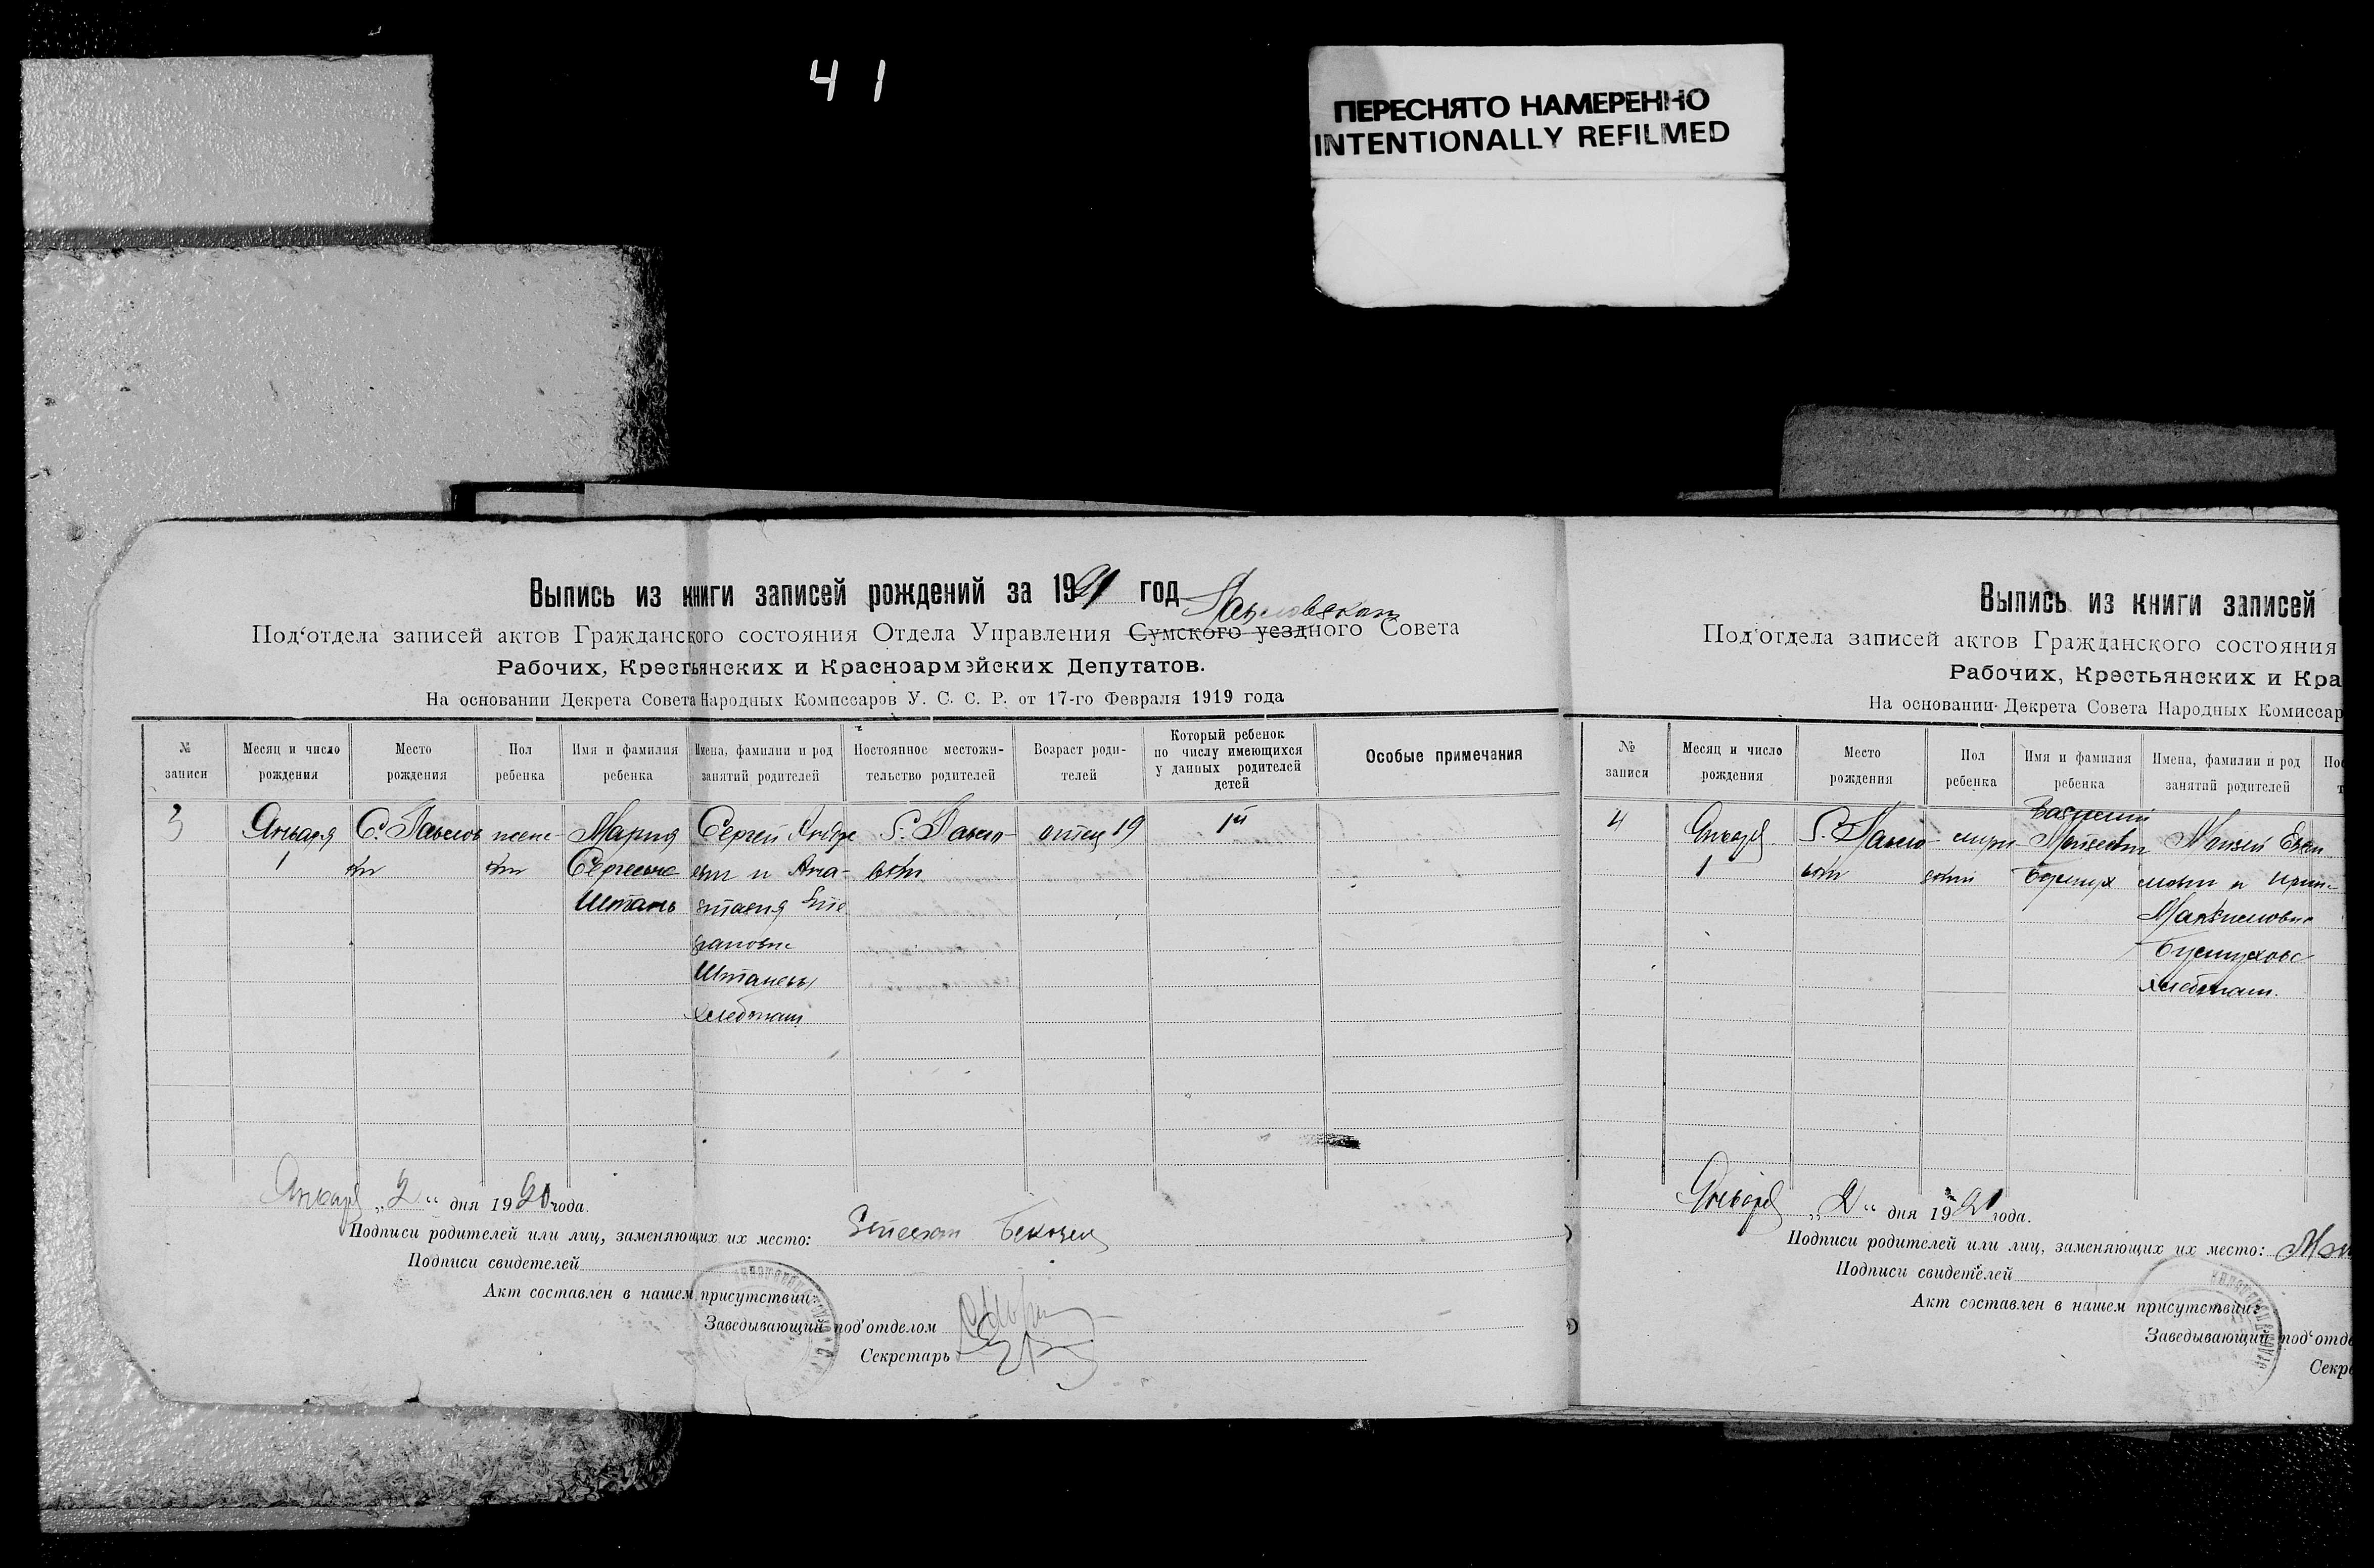 41
ПЕРЕСНЯТО НАМЕРЕННО
INTENTIONALLY REFILMED
Выпись из книги записей рождений за 1921 год
Павловскаго
Под‘отдела записей актов Гражданского состояния Отдела Управления Сумского уездного Совета
Рабочих, Крестьянских и Красноармейских Депутатов.
На основании Декрета Совета Народных Комиссаров У. С. С. Р. от 17-го Февраля 1919 года
№ записи
Месяц и число рождения
Место рождения
Пол ребенка
Имя и фамилия ребенка
Имена, фамилии и род занятий родителей
Постоянное местожи-
тельство родителей
Возраст роди-
телей
Который ребенок
по числу имеющихся
у данных родителей
детей
Особые примечания
3
Января
1
С. Павлов
жен-
Мария
Сергеевна
Штань
Сергей Андре
евич и Ана-
стасия Сте
пановна
Хлебопаш
С. Павло-
вки
отец 19
1й
Января „2“ дня 1921 года.
Подписи родителей или лиц, заменяющих их место: Степан
Подписи свидетелей
Акт составлен в нашем присутствии:
Заведывающий под‘отделом
Секретарь
Выпись из книги записей
Под‘отдела записей актов Гражданского состояния
Рабочих, Крестьянских и Кра
На основании Декрета Совета Народных Комиссар
№ записи
Месяц и число рождения
Место рождения
Пол ребенка
Имя и фамилия ребенка
Имена, фамилии и род занятий родителей
4
Января
1
С. Павло-
вки
мужс-
Василий
Моисеевич
Моисей
и Ирин-
Максимовна
Хлебопаш.
Января „2“ дня 1921 года.
Подписи родителей или лиц, заменяющих их место:
Подписи свидетелей
Акт составлен в нашем присутствии:
Заведывающий под‘отде
Секре